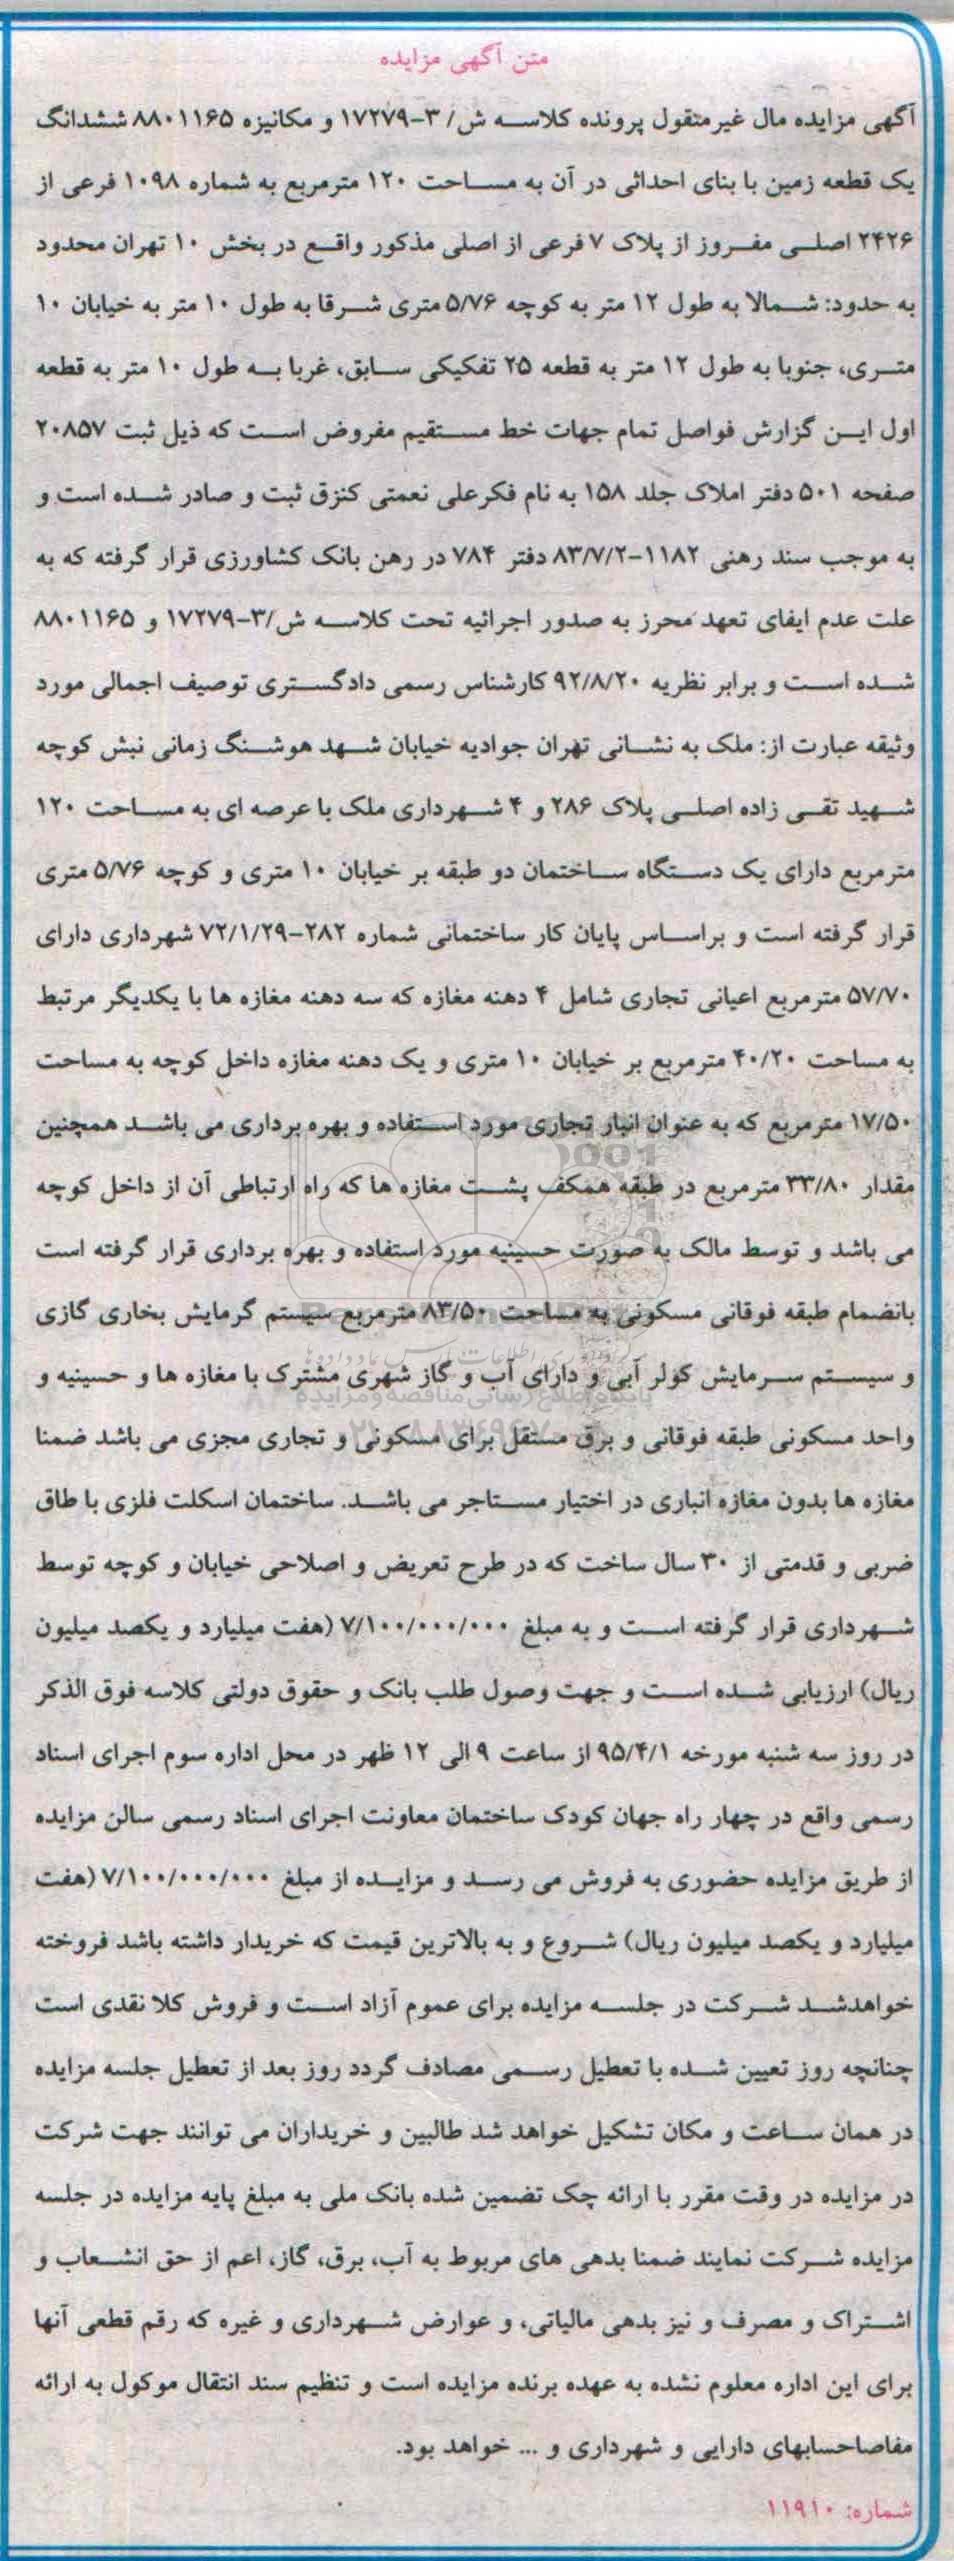 متن آگهی مزایده
آگهی مزایده مال غیرمتقول پرونده کلاسه ش/ ۳-۱۷۲۷۹ و مکانیزه ۸۸۰۱۱۶۵ ششدانگ
یک قطعه زمین با بنای احداثی در آن به مساحت ۱۲۰ مترمربع به شماره ۱۰۹۸ فرعی از
۲۴۲۶ اصلی مفروز از پلاک ۷ فرعی از اصلی مذکور واقع در بخش ۱۰ تهران محدود
به حدود: شمالا به طول ۱۲ متر به کوچه ۵/۷۶ متری شرقا به طول ۱۰ متر به خیابان ۱۰
متری، جنوبا به طول ۱۲ متر به قطعه ۲۵ تفکیکی سابق، غربا به طول ۱۰ متر به قطعه
اول این گزارش فواصل تمام جهات خط مستقیم مفروض است که ذیل ثبت ۲۰۸۵۷
صفحه ۵۰۱ دفتر املاک جلد ۱۵۸ به نام فکرعلی نعمتی کنزق ثبت و صادر شده است و
به موجب سند رهنی ۱۱۸۲-۸۳/۷/۲ دفتر ۷۸۴ در رهن بانک کشاورزی قرار گرفته که به
علت عدم ایفای تعهد محرز به صدور اجرائیه تحت کلاسه ش/۳-۱۷۲۷۹ و ۸۸۰۱۱۶۵
شده است و برابر نظریه ۹۲/۸/۲۰ کارشناس رسمی دادگستری توصیف اجمالی مورد
وثیقه عبارت از: ملک به نشانی تهران جوادیه خیابان شهد هوشنگ زمانی نبش کوچه
شهید تقی زاده اصلی پلاک ۲۸۶ و ۴ شهرداری ملک با عرصه ای به مساحت ۱۲۰
مترمربع دارای یک دستگاه ساختمان دو طبقه بر خیابان ۱۰ متری و کوچه ۵/۷۶ متری
قرار گرفته است و براساس پایان کار ساختمانی شماره ۲۸۲-۷۲/۱/۲۹ شهرداری دارای
۵۷/۷۰ مترمربع اعیانی تجاری شامل ۴ دهنه مغازه که سه دهنه مغازه ها با یکدیگر مرتبط
به مساحت ۴۰/۲۰ مترمربع بر خیابان ۱۰ متری و یک دهنه مغازه داخل کوچه به مساحت
۱۷/۵۰ مترمربع که به عنوان انبار تجاری مورد استفاده و بهره برداری می باشد همچنین
مقدار ۳۳/۸۰ مترمربع در طبقه همکف پشت مغازه ها که راه ارتباطی آن از داخل کوچه
می باشد و توسط مالک به صورت حسینیه مورد استفاده و بهره برداری قرار گرفته است
بانضمام طبقه فوقانی مسکونی به مساحت ۸۳/۵۰ مترمربع سیستم گرمایش بخاری گازی
و سیستم سرمایش کولر آبی و دارای آب و گاز شهری مشترک با مغازه ها و حسینیه و
واحد مسکونی طبقه فوقانی و برق مستقل برای مسکونی و تجاری مجزی می باشد ضمنا
مغازه ها بدون مغازه انباری در اختیار مستاجر می باشد. ساختمان اسکلت فلزی با طاق
ضربی و قدمتی از ۳۰ سال ساخت که در طرح تعریض و اصلاحی خیابان و کوچه توسط
شهرداری قرار گرفته است و به مبلغ ۷/۱۰۰/۰۰۰/۰۰۰ (هفت میلیارد و یکصد میلیون
ریال) ارزیابی شده است و جهت وصول طلب بانک و حقوق دولتی کلاسه فوق الذکر
در روز سه شنبه مورخه ۹۵/۴/۱ از ساعت ۹ الی ۱۲ ظهر در محل اداره سوم اجرای اسناد
رسمی واقع در چهار راه جهان کودک ساختمان معاونت اجرای اسناد رسمی سالن مزایده
از طریق مزایده حضوری به فروش می رسد و مزایده از مبلغ ۷/۱۰۰/۰۰۰/۰۰۰ (هفت
میلیارد و یکصد میلیون ریال) شروع و به بالاترین قیمت که خریدار داشته باشد فروخته
خواهدشد شرکت در جلسه مزایده برای عموم آزاد است و فروش کلا نقدی است
چنانچه روز تعیین شده با تعطیل رسمی مصادف گردد روز بعد از تعطیل جلسه مزایده
در همان ساعت و مکان تشکیل خواهد شد طالبین و خریداران می توانند جهت شرکت
در مزایده در وقت مقرر با ارائه چک تضمین شده بانک ملی به مبلغ پایه مزایده در جلسه
مزایده شرکت نمایند ضمنا بدهی های مربوط به آب، برق، گاز، اعم از حق انشعاب و
اشتراک و مصرف و نیز بدهی مالیاتی، و عوارض شهرداری و غیره که رقم قطعی آنها
برای این اداره معلوم نشده به عهده برنده مزایده است و تنظیم سند انتقال موکول به ارائه
مفاصاحسابهای دارایی و شهرداری و ... خواهد بود.
شماره: ۱۱۹۱۰